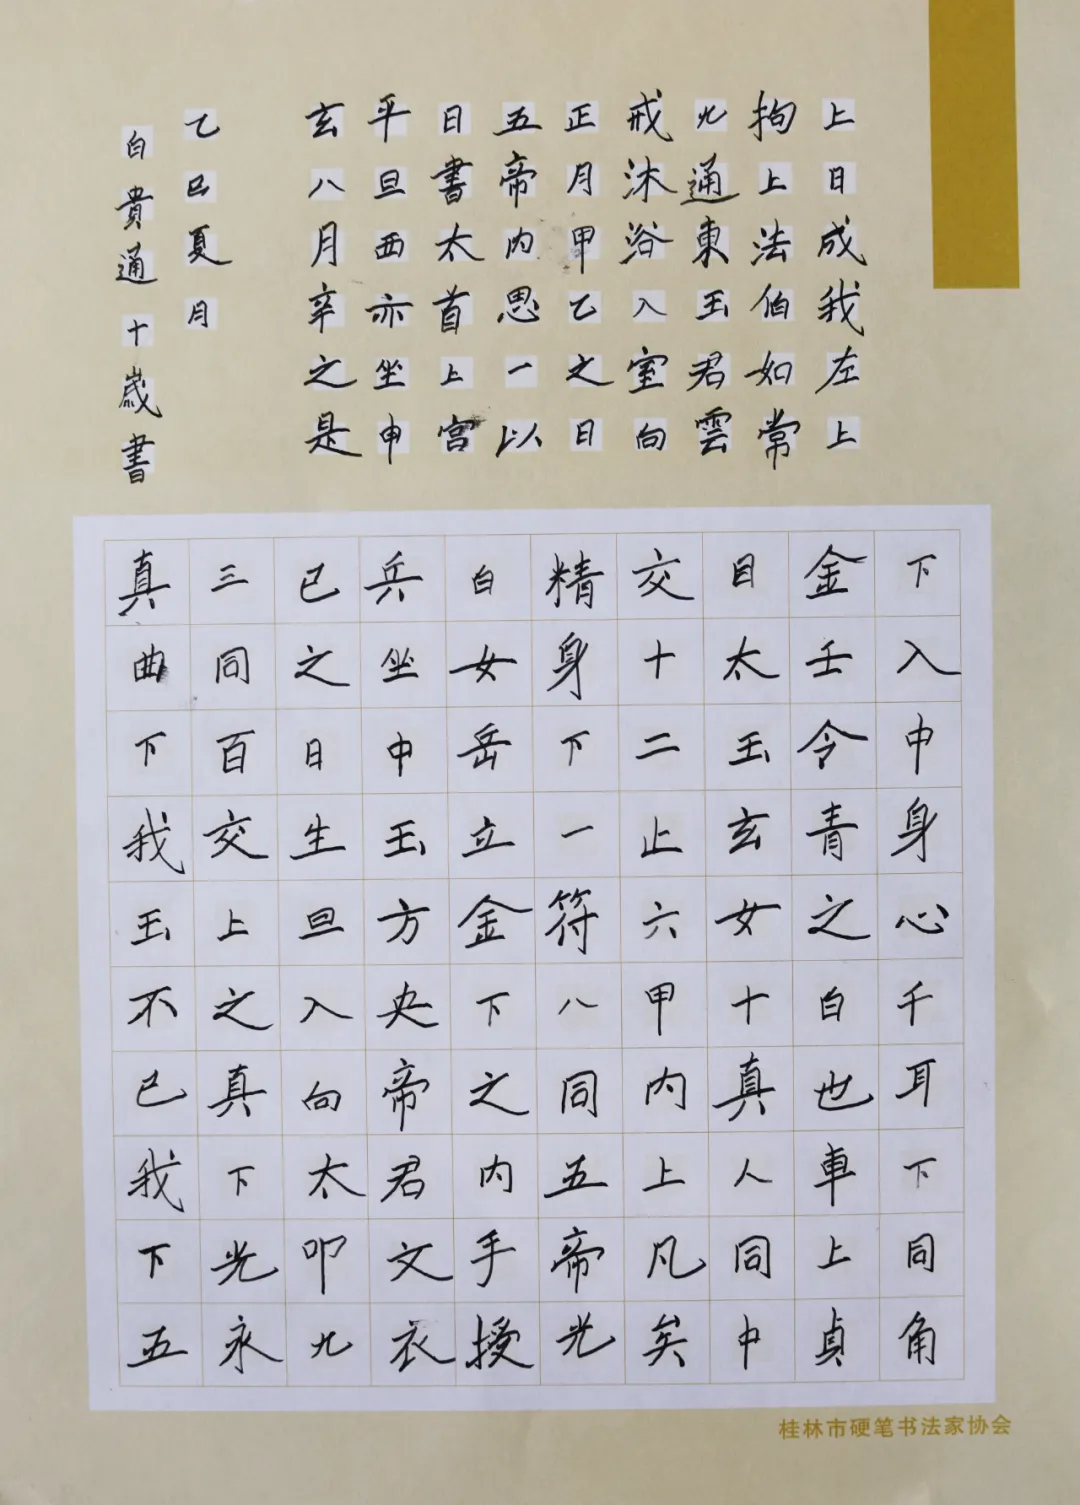 上日成我左上
拘上法伯如常
九通東玉君雲
戒沐浴入室向
正月甲乙之日
五帝内思一以
日書太首上宫
平旦西亦坐申
玄八月辛之是
乙巳夏月
白貴通十歲書
下入中身心千耳下同角
金壬令青之白也車上貞
目太玉玄女十真人同中
交十二止六甲内上凡矣
精身下一符八同五帝光
白女岳立金下之内手授
兵坐中玉方央帝君文衣
已之日生旦入向太叩九
三同百交上之真下光永
真曲下我玉不已我下五
桂林市硬笔书法家协会